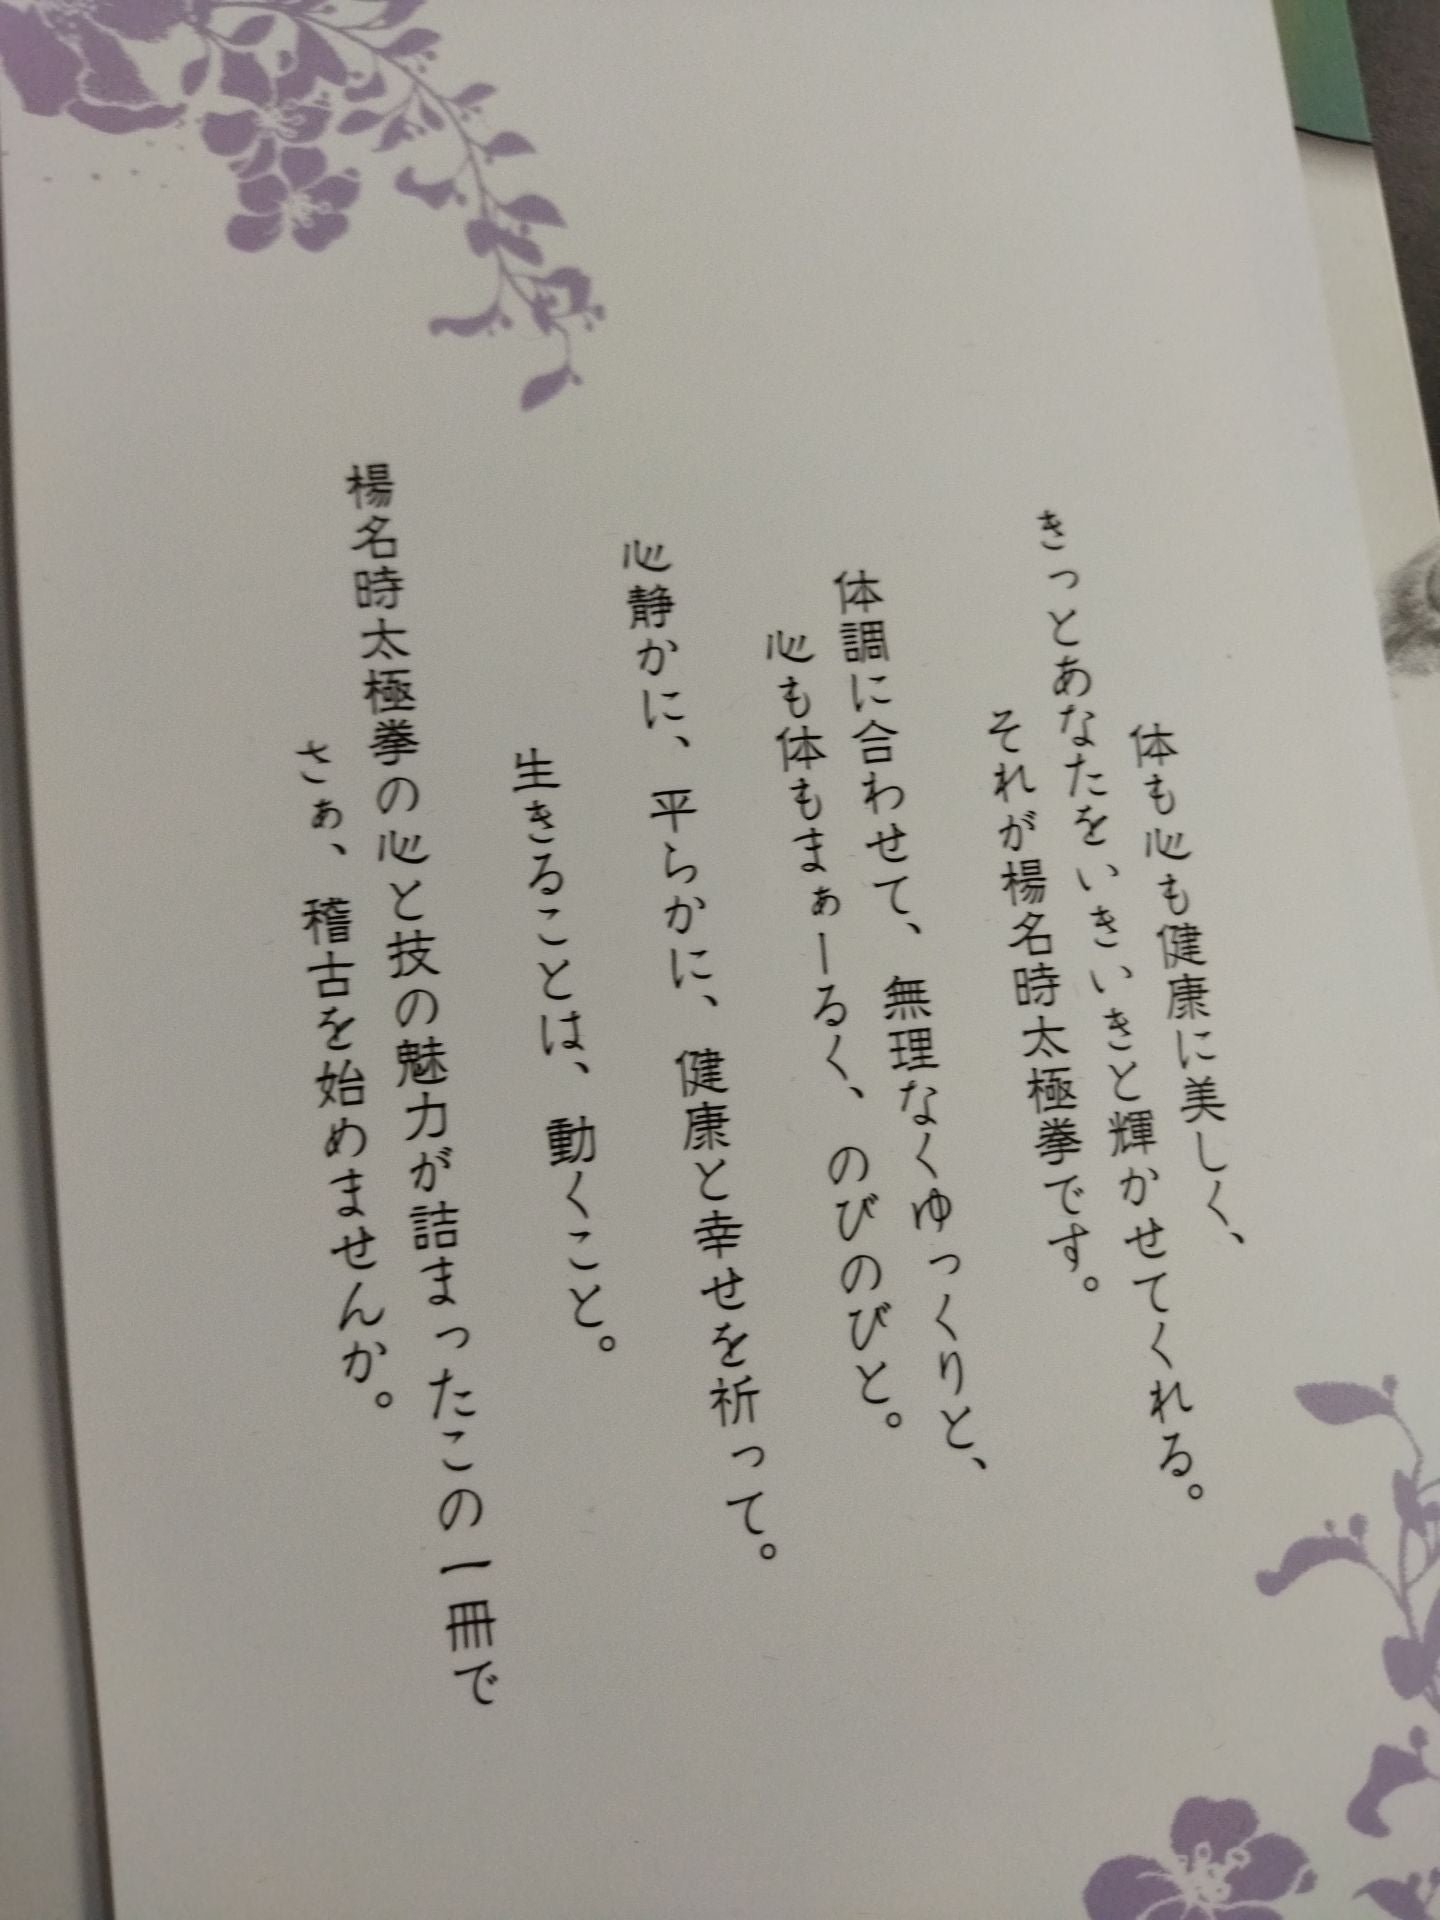 体も心も健康に美しく、
きっとあなたをいきいきと輝かせてくれる。
それが楊名時太極拳です。
体調に合わせて、無理なくゆっくりと、
心も体もまぁーるく、のびのびと。
心静かに、平らかに、健康と幸せを祈って。
生きることは、動くこと。
楊名時太極拳の心と技の魅力が詰まったこの一冊で
さぁ、稽古を始めませんか。